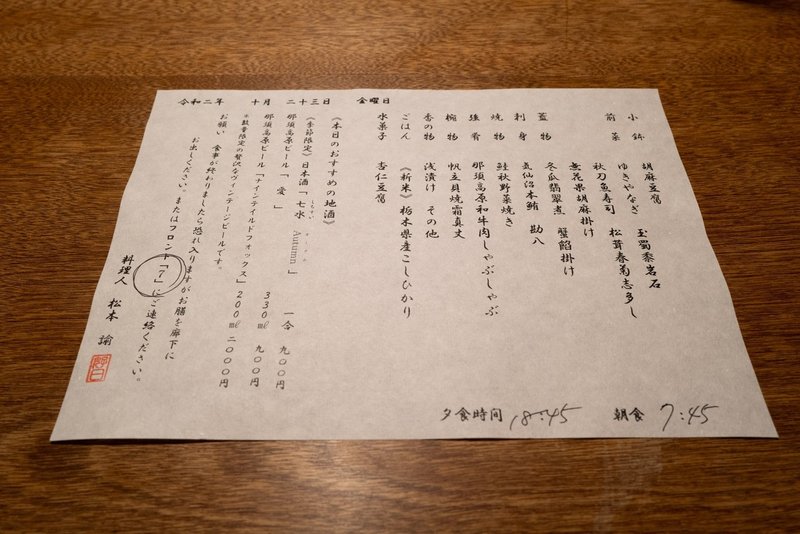 小鉢 胡麻豆腐
前菜 ゆきやなぎ 玉蜀黍岩石
秋刀魚寿司 松茸春菊志多し
無花果胡麻掛け
蓋物 冬瓜翡翠煮 蟹餡掛け
刺身 気仙沼本鮪 勘八
焼物 鮭秋野菜焼き
強肴 那須高原和牛肉しゃぶしゃぶ
椀物 帆立貝焼霜真丈
香の物 浅漬け その他
ごはん 《新米》栃木県産こしひかり
水菓子 杏仁豆腐
金曜日
《本日のおすすめの地酒》
《季節限定》日本酒「七水 Autumn」 一合 九〇〇円
しちすい
那須高原ビール「愛」 330㎖ 九〇〇円
那須高原ビール「ナインテイルドフォックス」200㎖ 二〇〇〇円
※数量限定の贅沢なヴィンテージビールです。
お願い 食事が終わりましたら恐れ入りますがお膳を廊下に
お出しください。またはフロント「7」にご連絡ください。
料理人 松本 諭
令和二年 十月 二十三日
夕食時間 18:45 朝食 7:45